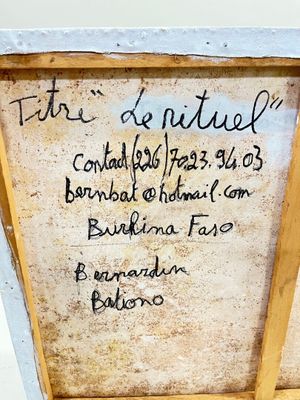 Titre " Le rituel "
Contact (226) 70.23.94.03
bernbat@hotmail.com
Burkina Faso
Bernardin
Bationo